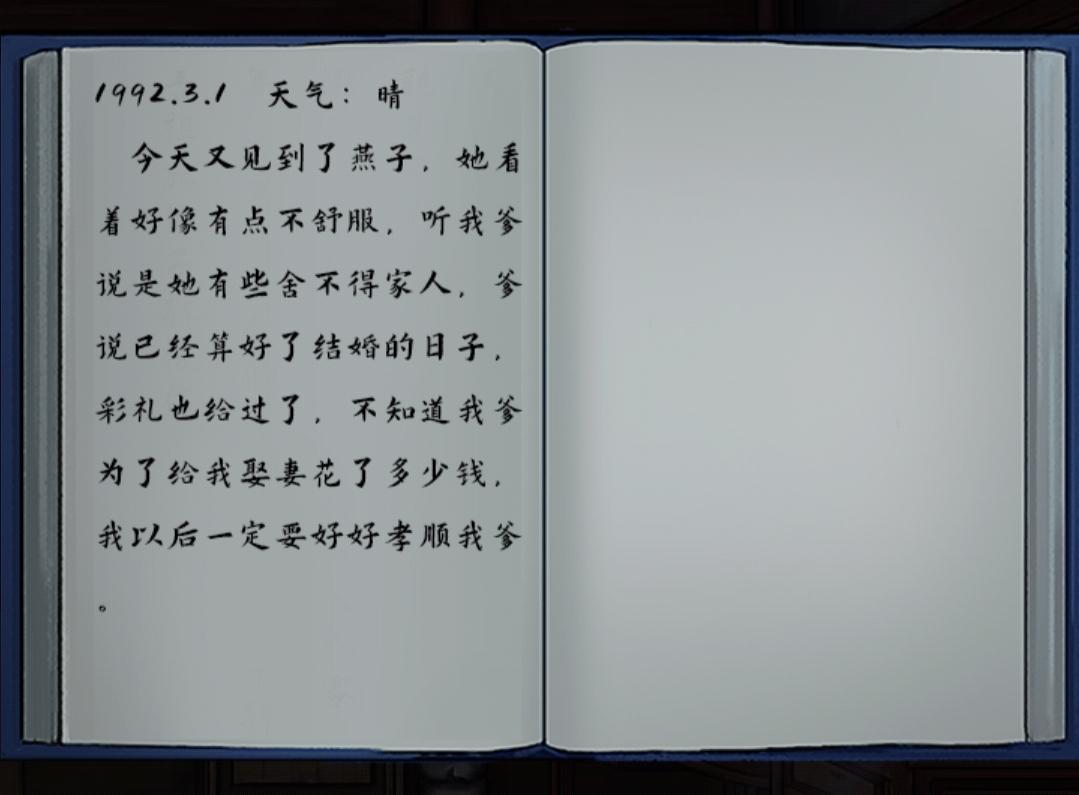 1992.3.1 天气：晴
今天又见到了燕子，她看
着好像有点不舒服，听我爹
说是她有些舍不得家人，爹
说已经算好了结婚的日子，
彩礼也给过了，不知道我爹
为了给我娶妻花了多少钱，
我以后一定要好好孝顺我爹
。